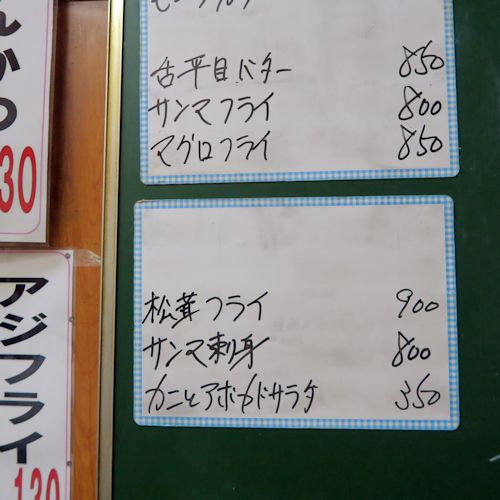 舌平目バター 850
サンマフライ 800
マグロフライ 850
松茸フライ 900
サンマ刺身 800
カニとアボカドサラダ 350
んかつ
30
アジフライ
130